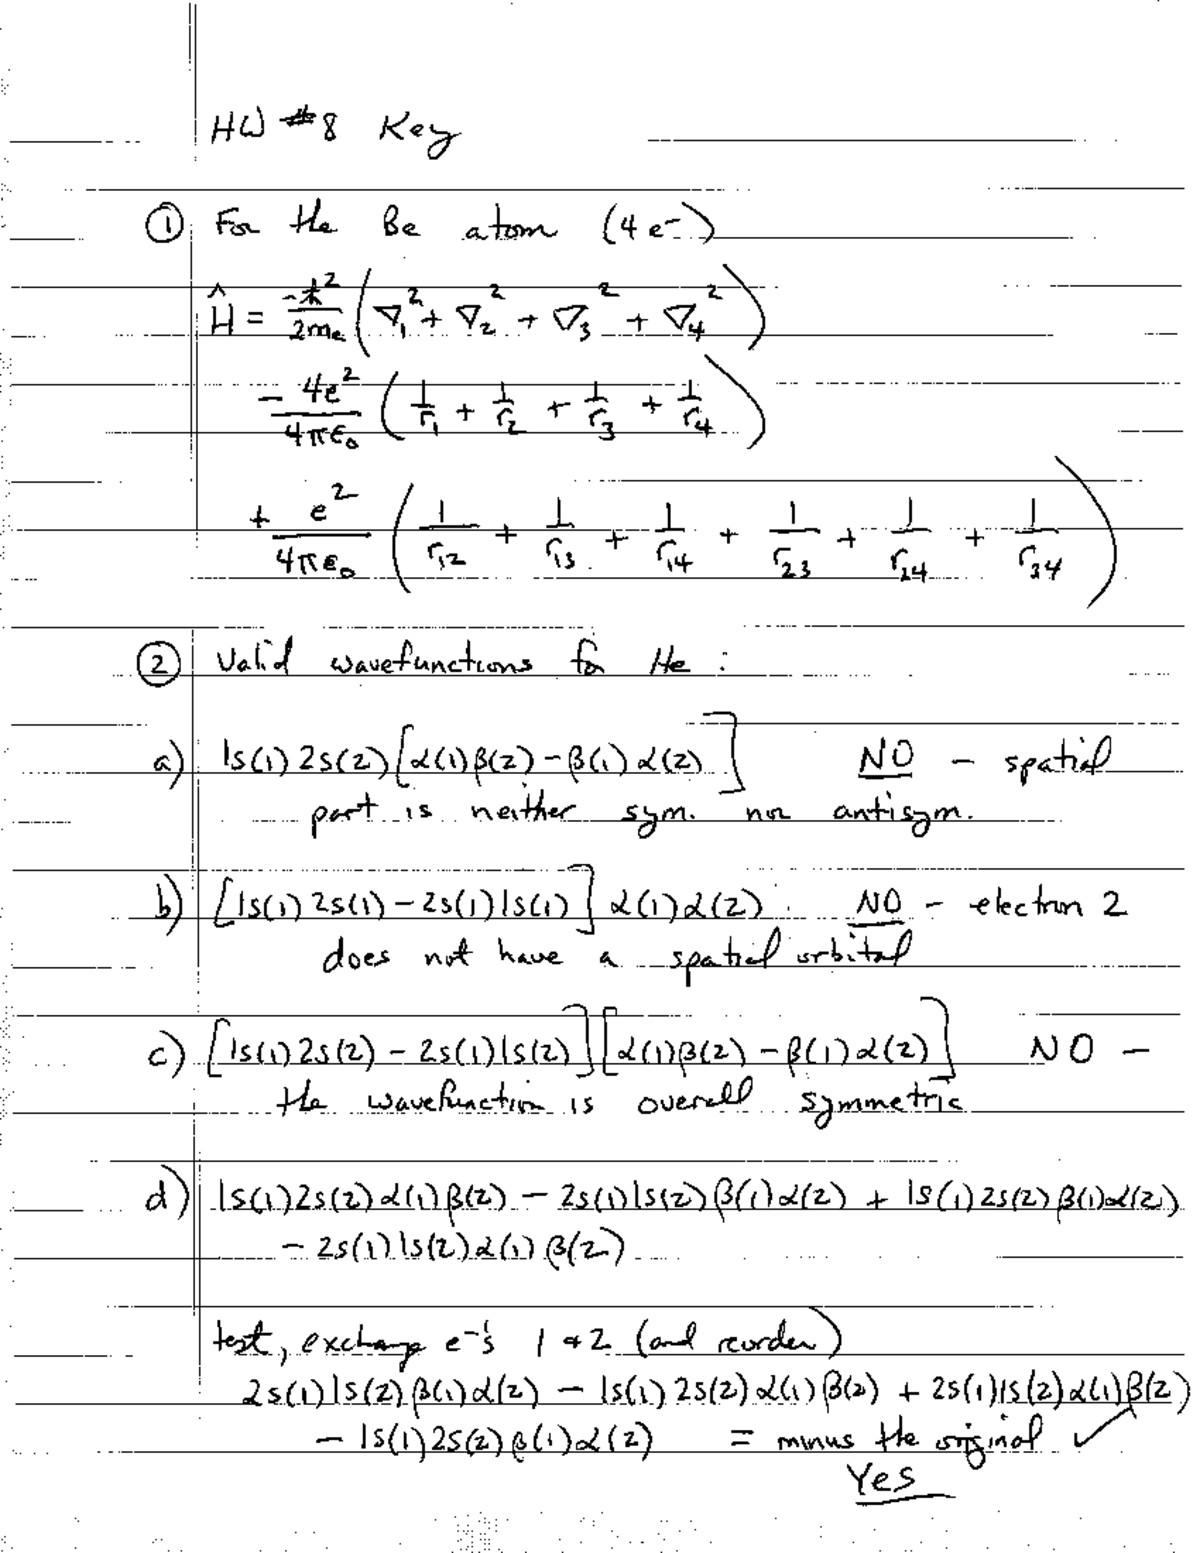 HW #8 Key
① For the Be atom (4 e⁻)
Ĥ = -ħ²/2mₑ (∇₁² + ∇₂² + ∇₃² + ∇₄²)
- 4e²/4πε₀ (1/r₁ + 1/r₂ + 1/r₃ + 1/r₄)
+ e²/4πε₀ (1/r₁₂ + 1/r₁₃ + 1/r₁₄ + 1/r₂₃ + 1/r₂₄ + 1/r₃₄)
② Valid wavefunctions for He :
a) 1s(1) 2s(2) [α(1)β(2) - β(1) α(2)] NO - spatial
part is neither sym. nor antisym.
b) [1s(1) 2s(1) - 2s(1) 1s(1)] α(1)α(2) NO - electron 2
does not have a spatial orbital
c) [1s(1) 2s(2) - 2s(1) 1s(2)] [α(1)β(2) - β(1)α(2)] NO -
the wavefunction is overall symmetric
d) 1s(1)2s(2)α(1)β(2) - 2s(1)1s(2)β(1)α(2) + 1s(1)2s(2)β(1)α(2)
- 2s(1)1s(2)α(1)β(2)
test, exchange e⁻'s 1 & 2 (and reorder)
2s(1)1s(2)β(1)α(2) - 1s(1)2s(2)α(1)β(2) + 2s(1)1s(2)α(1)β(2)
- 1s(1)2s(2)β(1)α(2) = minus the original ✓
Yes